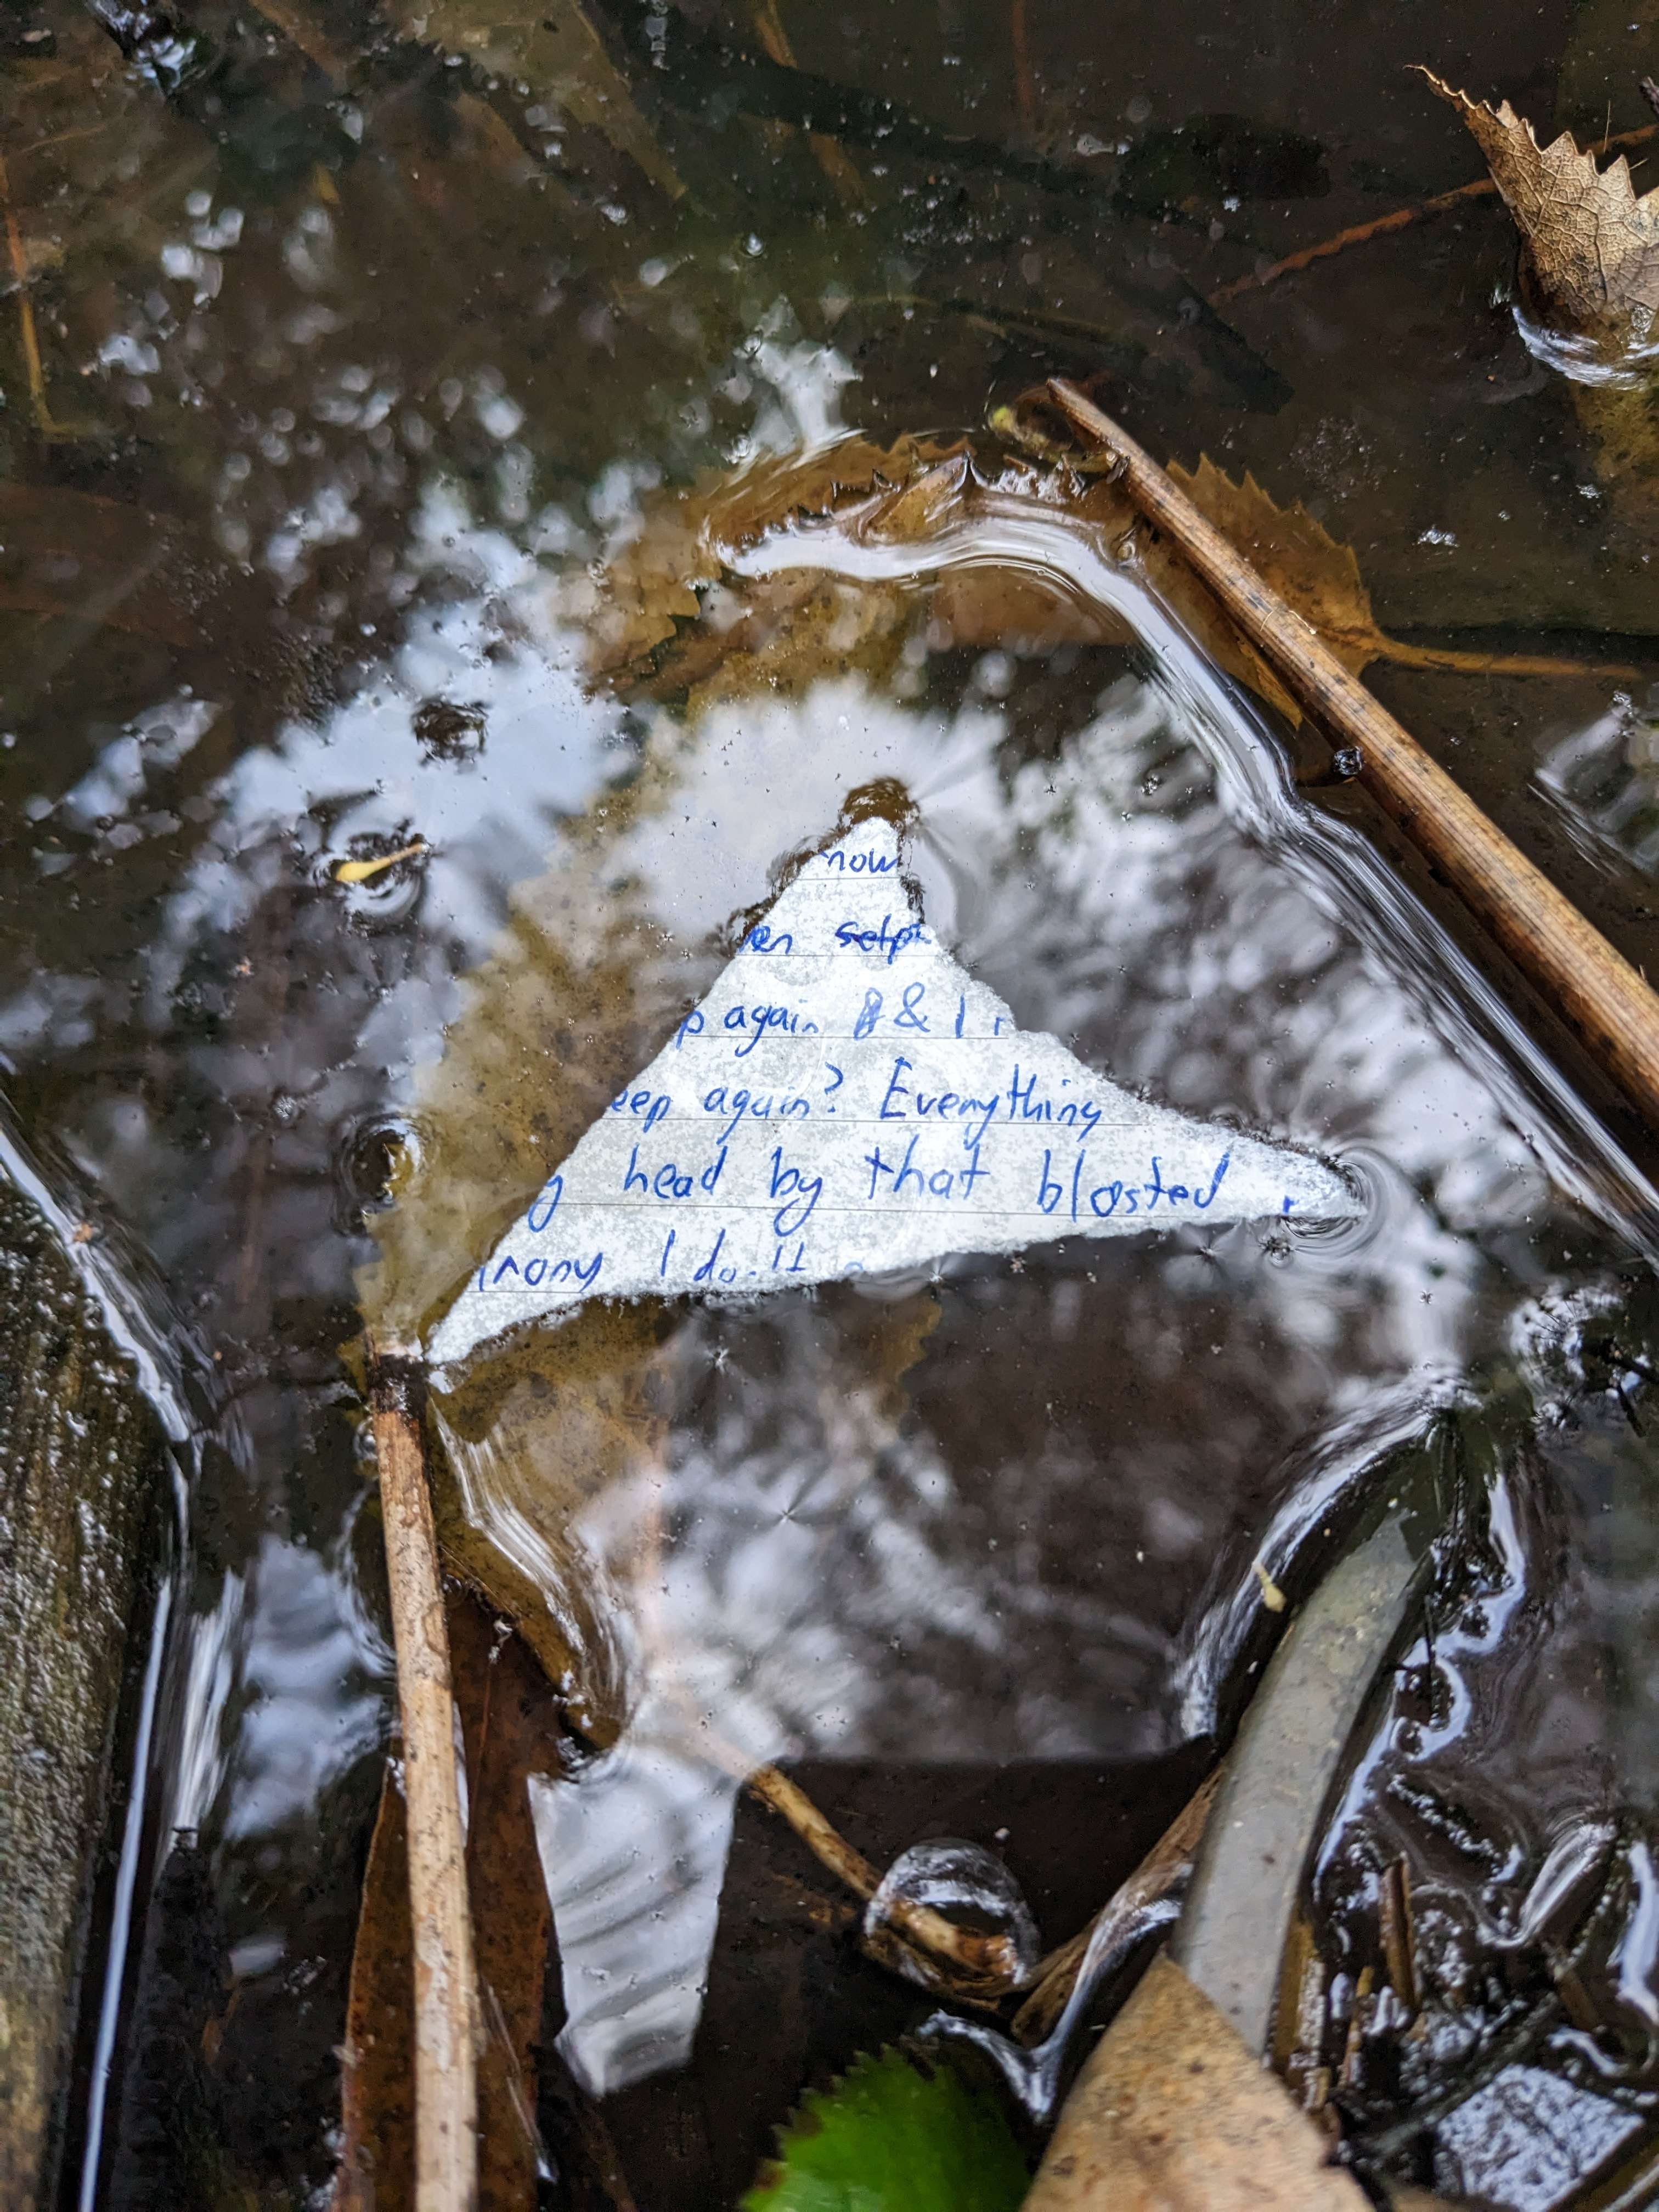 now
en setp
p again & I
eep again? Everything
y head by that blasted
rony I do.